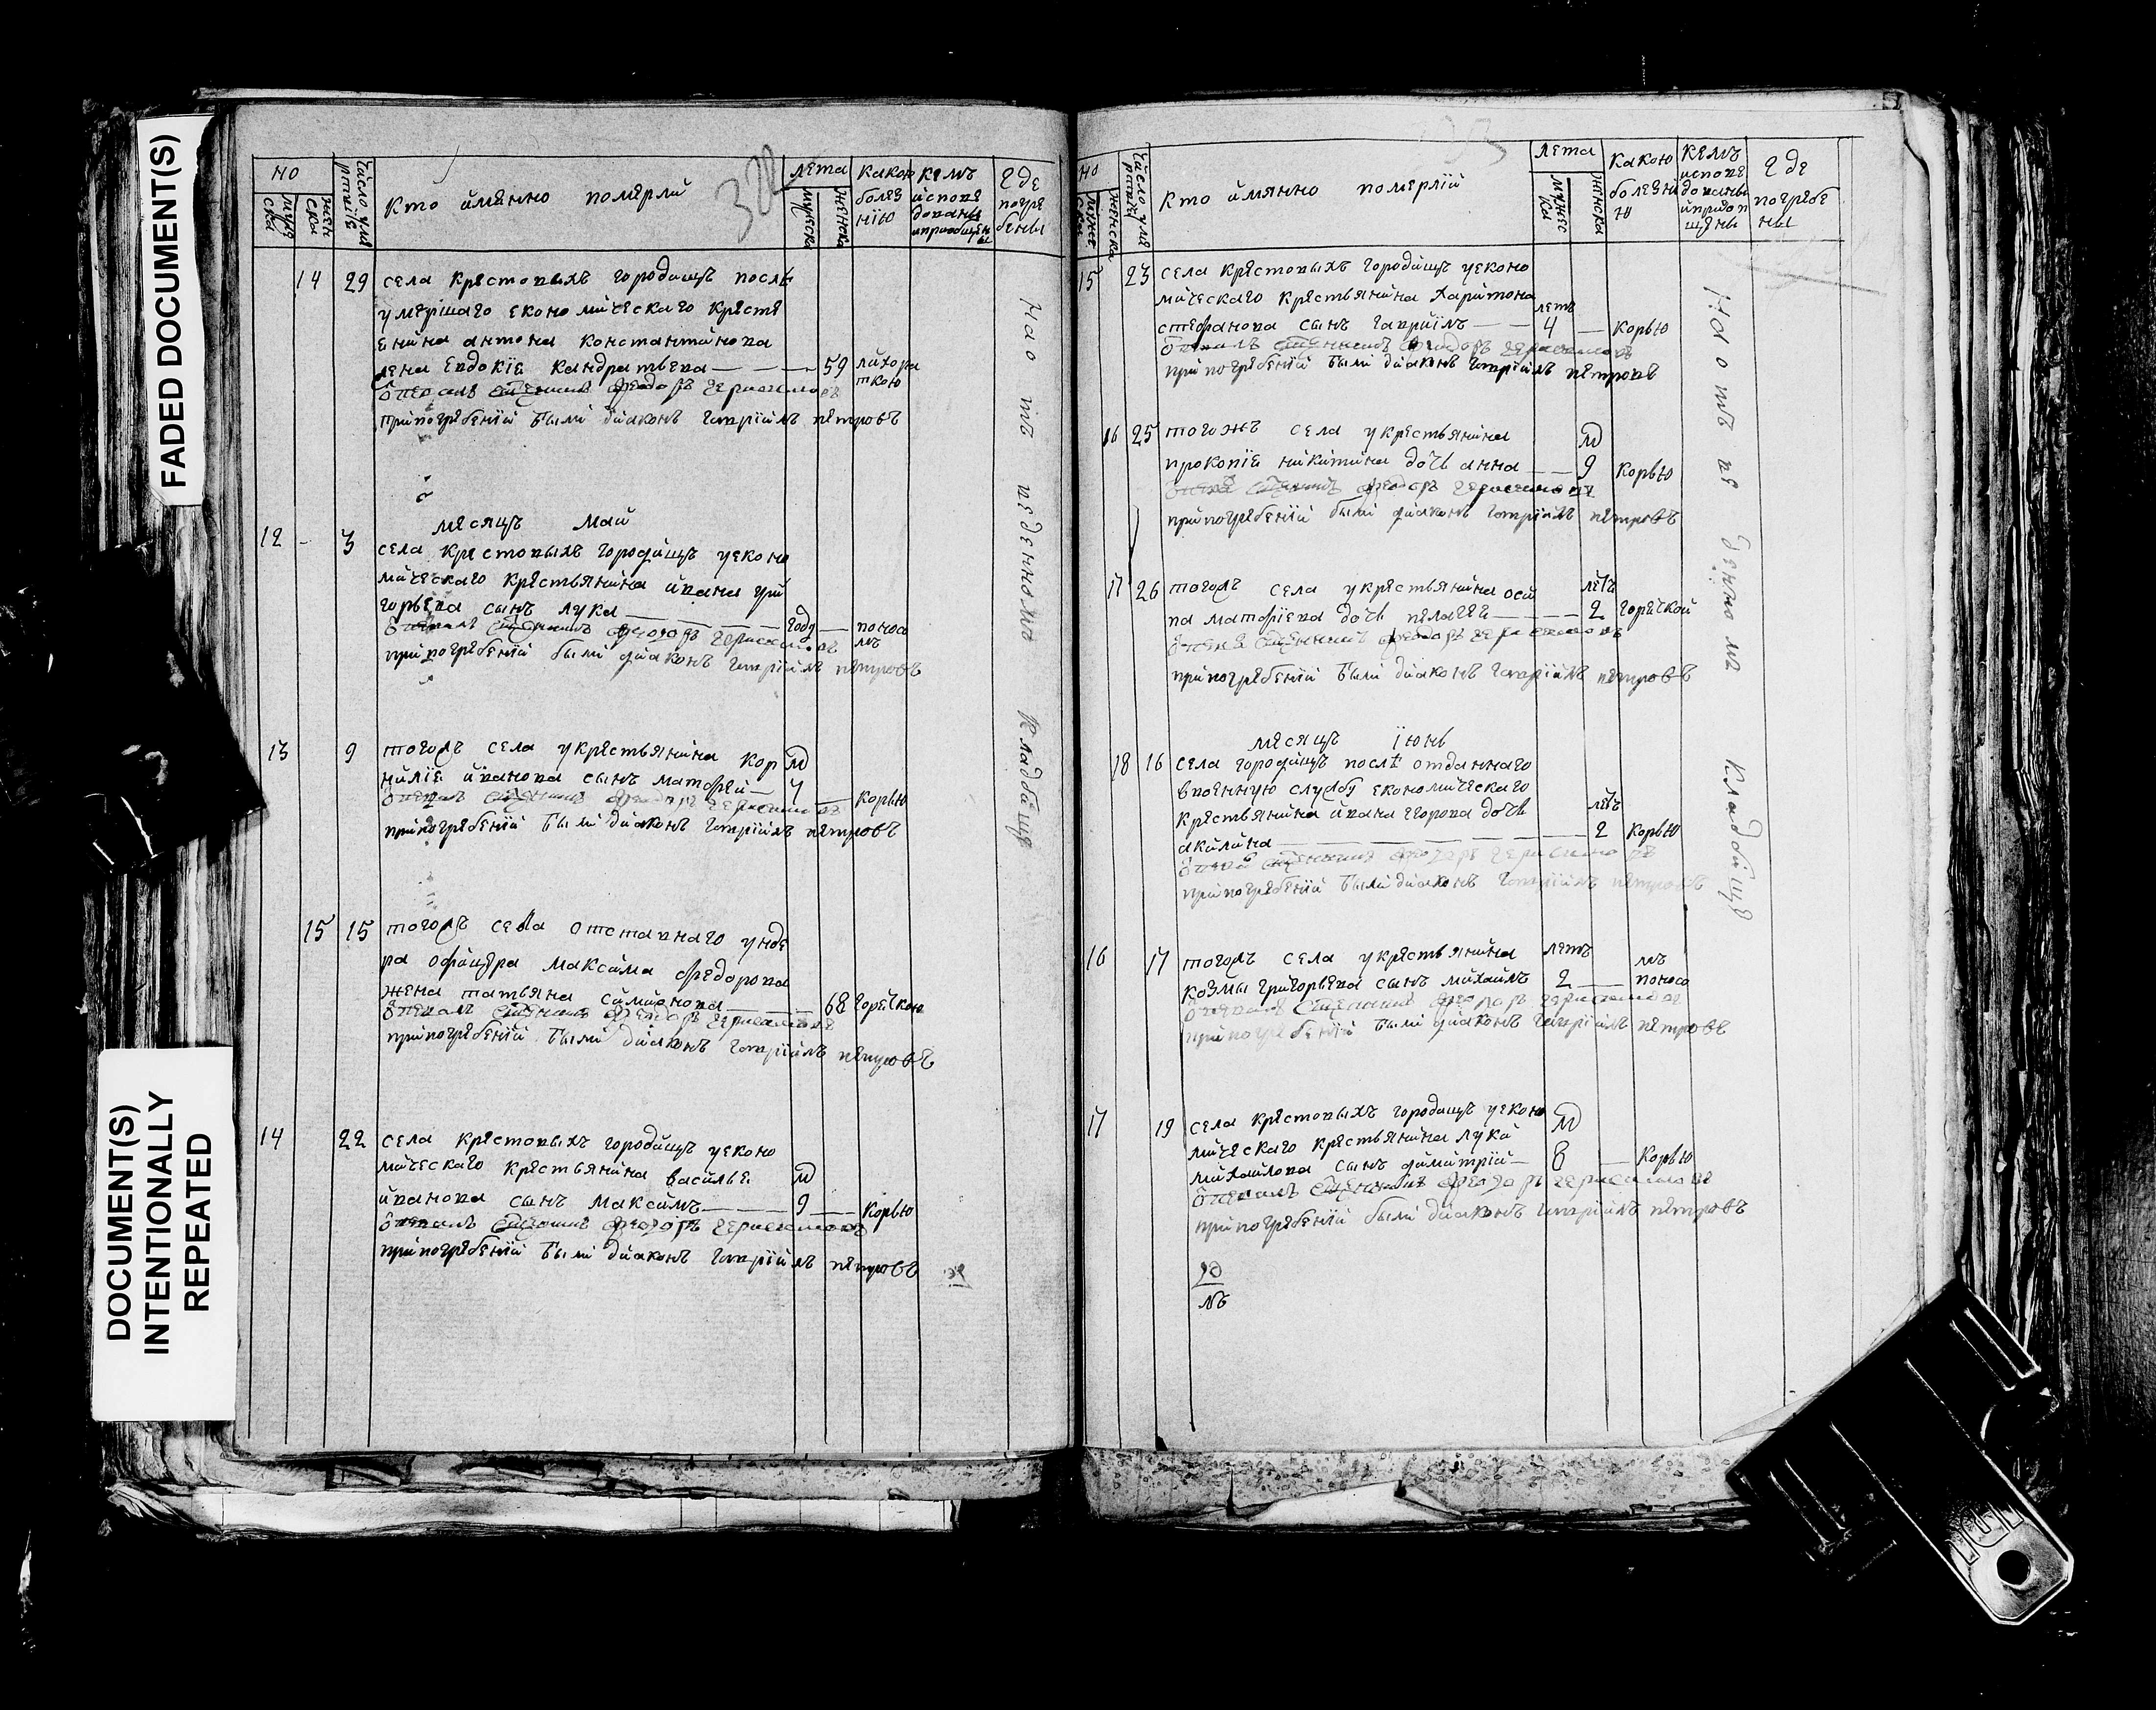 FADED DOCUMENT(S)
DOCUMENT(S)
INTENTIONALLY
REPEATED
но
мужеска
женска
Число умртвiе
Кто имянно померли
322
лета
мужеска
женска
какою болезнiю
кемъ исповедованы и приобщены
где погребены
14 29 села крестовыхъ городищъ послѣ
умершаго економическаго кресте
енина антона константинова
жена евдокiе кандратьева — 59 лихора
ткою
отпевалъ священникъ феодоръ герасимовъ
при погребенiи были дiаконъ гаврiилъ петровъ
месяцъ май
12 - 3 села крестовыхъ городищъ уеконо
мическаго крестьянина ивана гри
горьева сынъ лука — году — поносо
мъ
отпевалъ священникъ феодоръ герасимовъ
при погребенiи были дiаконъ гаврiилъ петровъ
13 9 тогожъ села укрестьянина кор
нилiе иванова сынъ матфей — м 4 — корью
отпевалъ священникъ феодоръ герасимовъ
при погребенiи были дiаконъ гаврiилъ петровъ
15 15 тогожъ села отставнаго унде
ра офицера максима федорова
жена татьяна симионова — 68 горечкою
отпевалъ священникъ феодоръ герасимовъ
при погребенiи были дiаконъ гаврiилъ петровъ
14 22 села крестовыхъ городищъ уеконо
мическаго крестьянина василье
иванова сынъ максимъ — м 9 — корью
отпевалъ священникъ феодоръ герасимовъ
при погребенiи были дiаконъ гаврiилъ петровъ
На отведенномъ кладбище
но
мужеска
женска
Число умртвiй
Кто имянно померлiи
лета
мужеска
женска
какою болезнию
кемъ исповедованы и приобщены
где погребены
15 23 села крестовыхъ городищъ уеконо
мическаго крестьянина харитона
стефанова сынъ гаврiилъ — летъ 4 — корью
отпевалъ священникъ феодоръ герасимовъ
при погребенiи были дiаконъ гаврiилъ петровъ
16 25 тогожъ села укрестьянина
прокопiе никитина дочь анна — м 9 корью
отпевалъ священникъ феодоръ герасимовъ
при погребенiи были дiаконъ гаврiилъ петровъ
17 26 тогожъ села укрестьянина оси
па матфiева дочь пелагея — летъ 2 горечкой
отпевалъ священникъ феодоръ герасимовъ
при погребенiи были дiаконъ гаврiилъ петровъ
месяцъ iюнь
18 16 села городищъ послѣ отданнаго
ввоенную службу економическаго
крестьянина ивана егорова дочь
акилина — летъ 2 корью
отпевалъ священникъ феодоръ герасимовъ
при погребенiи были дiаконъ гаврiилъ петровъ
16 17 тогожъ села укрестьянина
козмы григорьева сынъ михаилъ — летъ 2 — поносо
мъ
отпевалъ священникъ феодоръ герасимовъ
при погребенiи были дiаконъ гаврiилъ петровъ
17 19 села крестовыхъ городищъ уеконо
мическаго крестьянина луки
михаилова сынъ димитрiй — м 8 — корью
отпевалъ священникъ феодоръ герасимовъ
при погребенiи были дiаконъ гаврiилъ петровъ
На отведенномъ кладбище